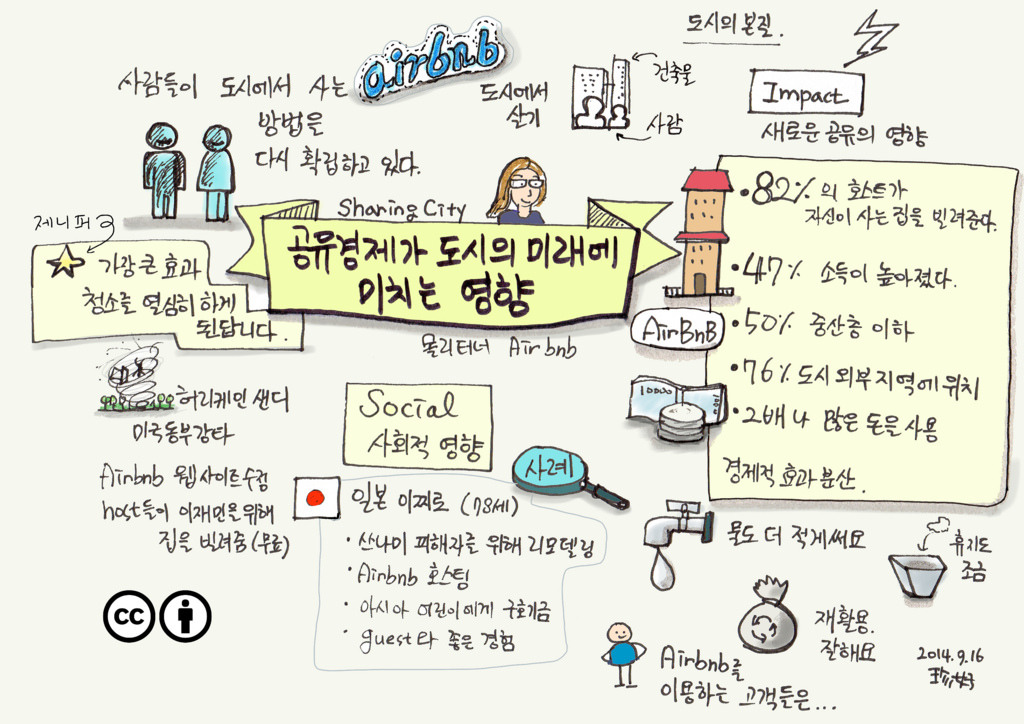 도시의 본질.
airbnb
사람들이 도시에서 사는
방법을
다시 확립하고 있다.
도시에서
살기
건축물
사람
Impact
새로운 공유의 영향
• 82%의 호스트가
자신이 사는 집을 빌려준다.
• 47% 소득이 높아졌다.
• 50% 중산층 이하
• 76% 도시 외부 지역에 위치
• 2배나 많은 돈을 사용
경제적 효과 분산.
AirBnB
10000
Sharing City
공유경제가 도시의 미래에
미치는 영향
몰리터너 Airbnb
제니퍼
가장 큰 효과
청소를 열심히 하게
된답니다.
허리케인 샌디
미국동부강타
Airbnb 웹사이트 수정
host들이 이재민을 위해
집을 빌려줌 (무료)
Social
사회적 영향
사례
일본 이찌로 (78세)
• 쓰나미 피해자를 위해 리모델링
• Airbnb 호스팅
• 아시아 어린이에게 구호기금
• guest와 좋은 경험
물도 더 적게써요
휴지도
조금
재활용.
잘해요
Airbnb를
이용하는 고객들은...
cc
2014.9.16